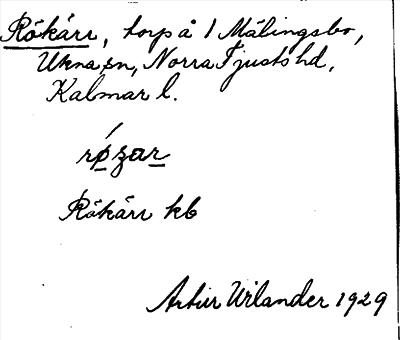 Rökärr, torp å 1 Mälingsbo,
Ukna sn, Norra Tjusts hd,
Kalmar l.
Rökärr kb
Artur Wilander 1929